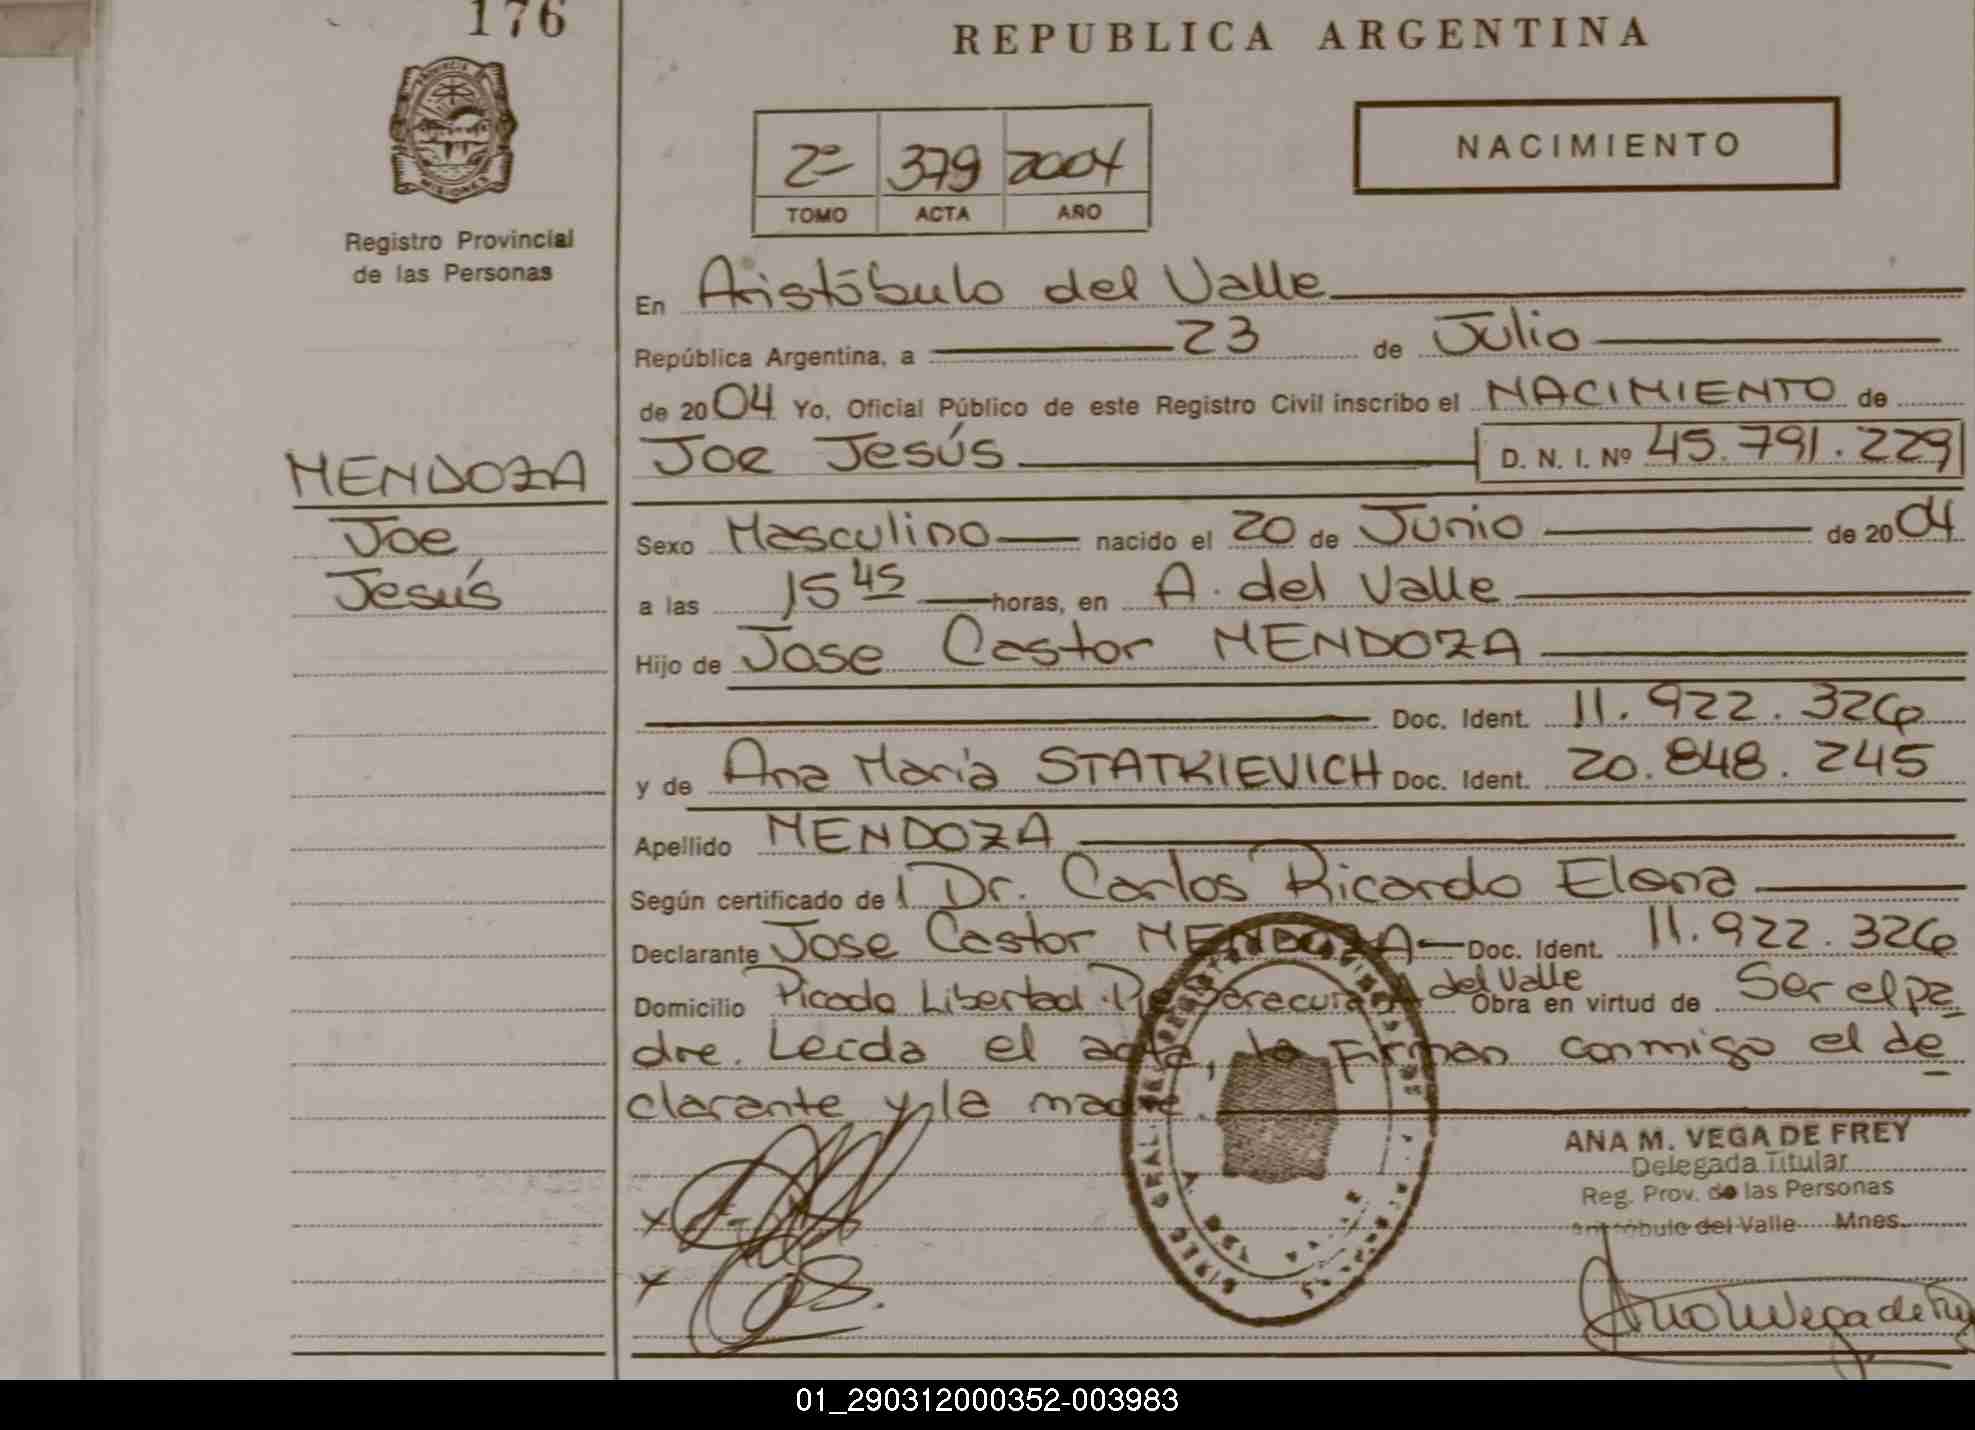 176
REPUBLICA ARGENTINA
PROVINCIA
MISIONES
Registro Provincial
de las Personas
2º 379 2004
TOMO ACTA AÑO
NACIMIENTO
En Aristóbulo del Valle
República Argentina, a 23 de Julio
de 2004 Yo, Oficial Público de este Registro Civil inscribo el NACIMIENTO de
Joe Jesús D. N. I. Nº 45.791.229
MENDOZA
Joe
Jesús
Sexo Masculino nacido el 20 de Junio de 2004
a las 15 45 horas, en A. del Valle
Hijo de Jose Castor MENDOZA
Doc. Ident. 11.922.326
y de Ana María STATKIEVICH Doc. Ident. 20.848.245
Apellido MENDOZA
Según certificado de l Dr. Carlos Ricardo Elena
Declarante Jose Castor MENDOZA Doc. Ident. 11.922.326
Domicilio Picada Libertad del Valle Obra en virtud de Ser el pa
dre. Leída el acta, la firman conmigo el de
clarante y la madre.
ANA M. VEGA DE FREY
Delegada Titular
Reg. Prov. de las Personas
Aristóbulo del Valle Mnes.
01_290312000352-003983